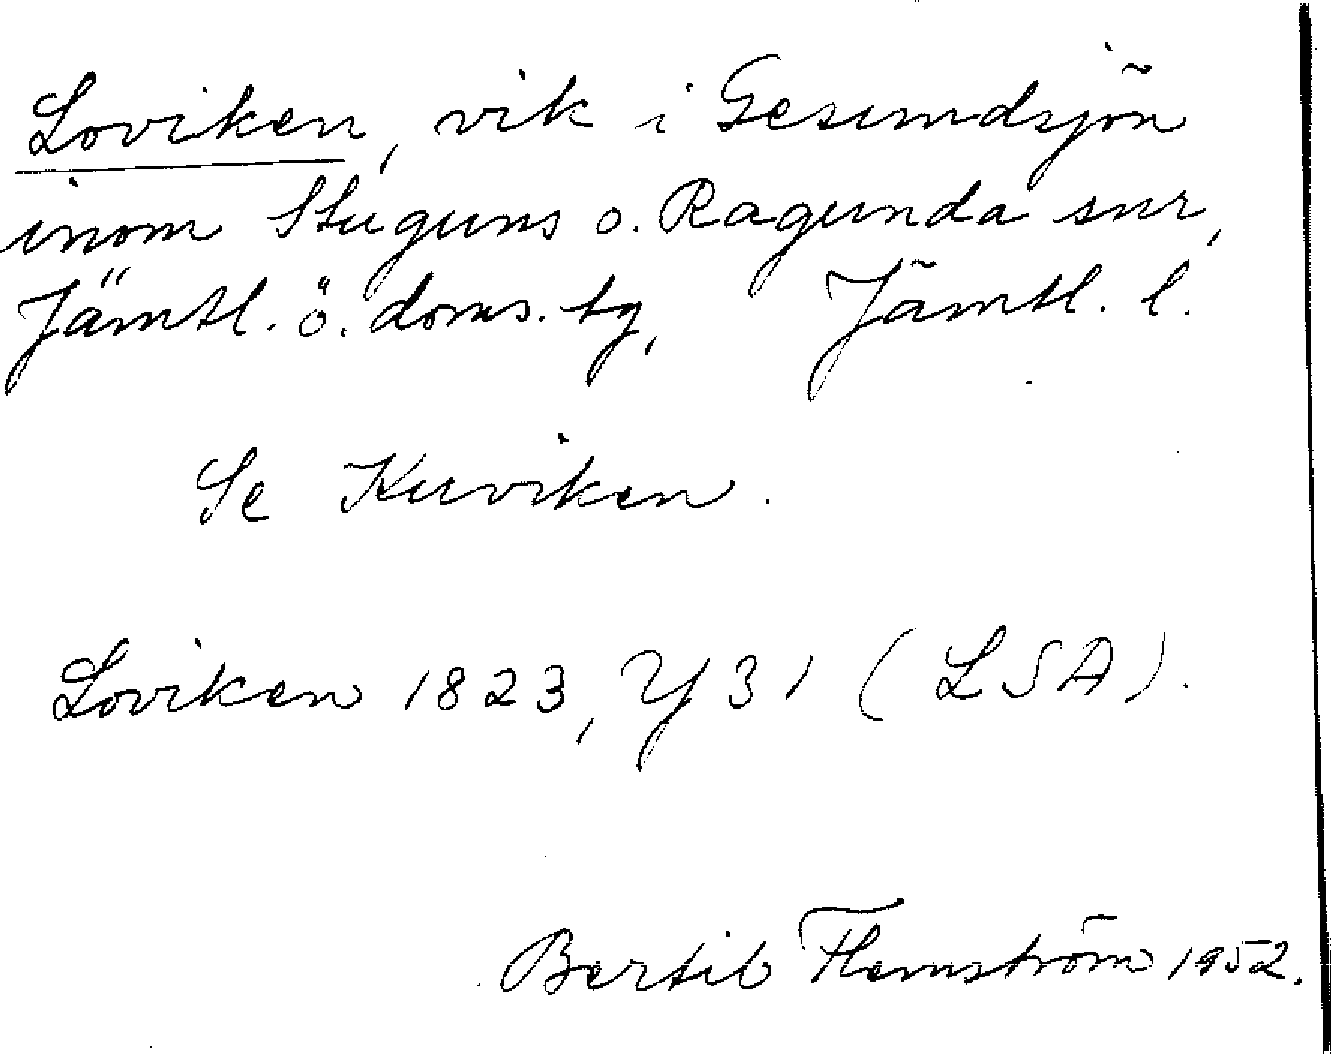 Loviken, vik i Gesundsjön
inom Stuguns o. Ragunda snr,
Jämtl. ö. doms. tg, Jämtl. l.
Se Kuviken.
Loviken 1823, Y31 (LSA).
Bertil Flemström 1952.